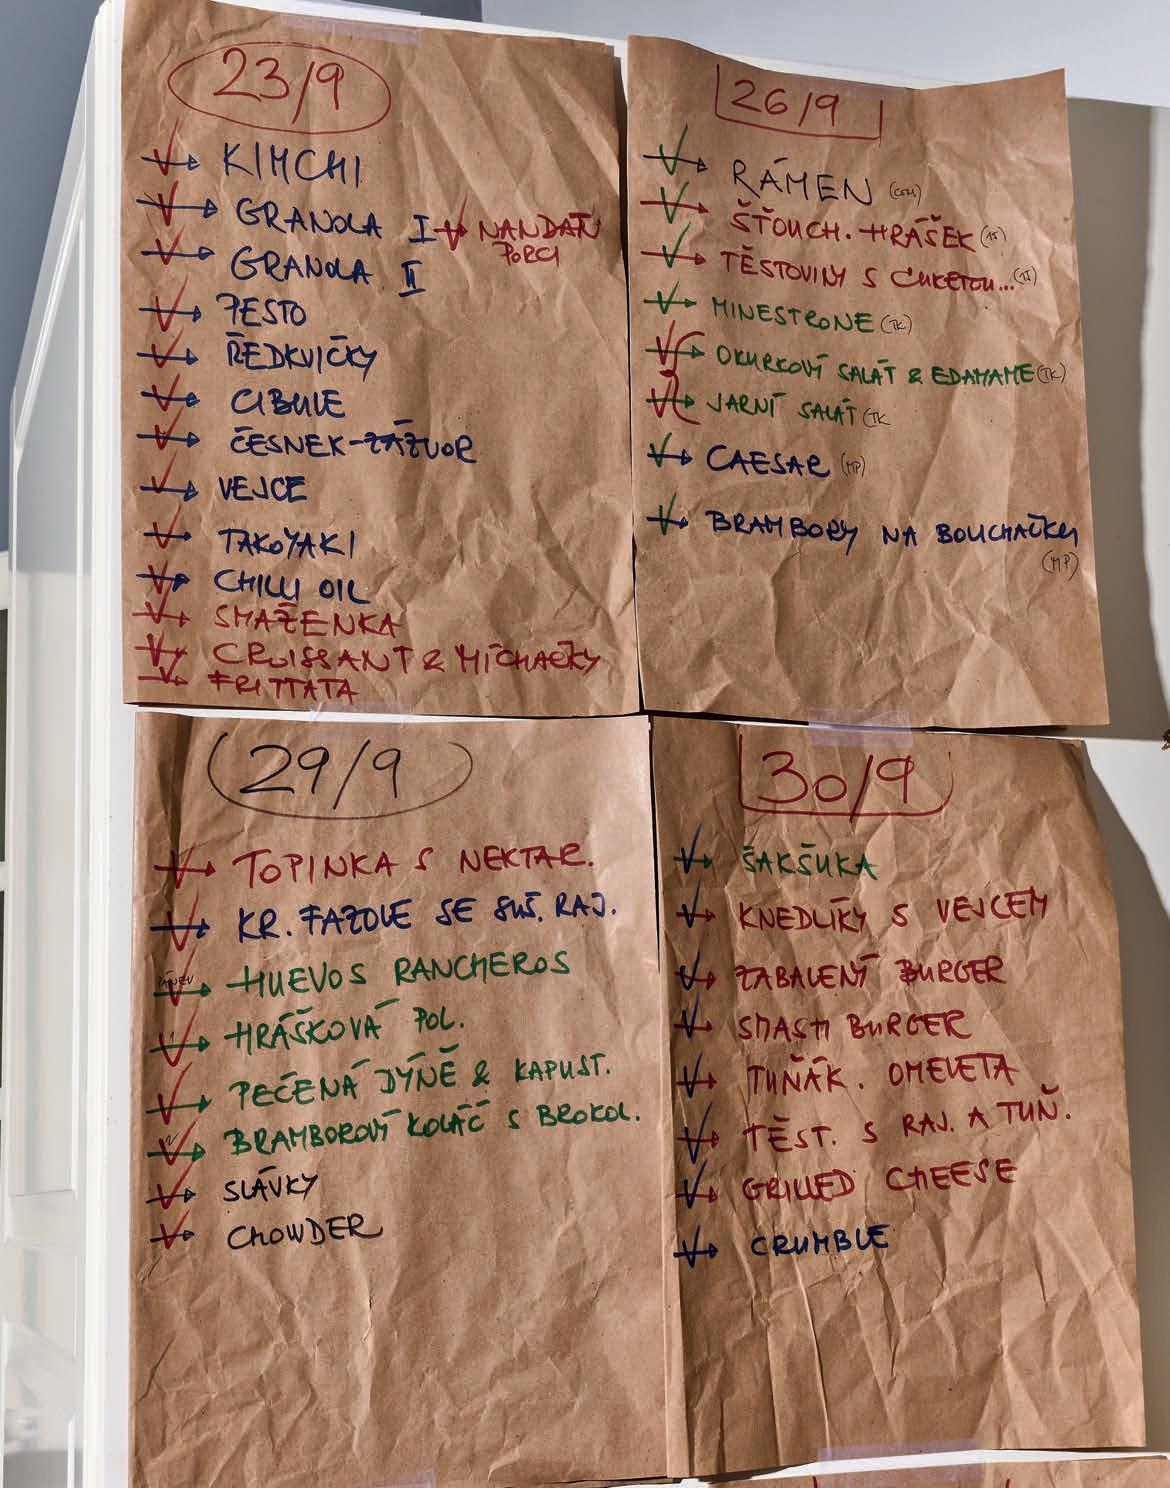 23/9
KIMCHI
GRANOLA I NANDAŇ
PORCI
GRANOLA II
PESTO
ŘEDKVIČKY
CIBULE
ČESNEK-ZÁZVOR
VEJCE
TAKOYAKI
CHILLI OIL
SMAŽENKA
CROISSANT & MÍCHAČKY
FRITTATA
26/9
RÁMEN
ŠŤOUCH. HRÁŠEK
TĚSTOVINY S CUKETOU...
MINESTRONE (TK)
OKURKOVÝ SALÁT & EDAMAME (TK)
JARNÍ SALÁT (TK
CAESAR (MP)
BRAMBORY NA BOUCHAČKU
(MP)
29/9
TOPINKA S NEKTAR.
KR. FAZOLE SE SUŠ. RAJ.
PÁNEV HUEVOS RANCHEROS
HRÁŠKOVÁ POL.
PEČENÁ DÝNĚ & KAPUST.
BRAMBOROVÝ KOLÁČ S BROKOL.
SLÁVKY
CHOWDER
30/9
ŠAKŠUKA
KNEDLÍKY S VEJCEM
ZABALENÝ BURGER
SMASH BURGER
TUŇÁK. OMELETA
TĚST. S RAJ. A TUŇ.
GRILLED CHEESE
CRUMBLE